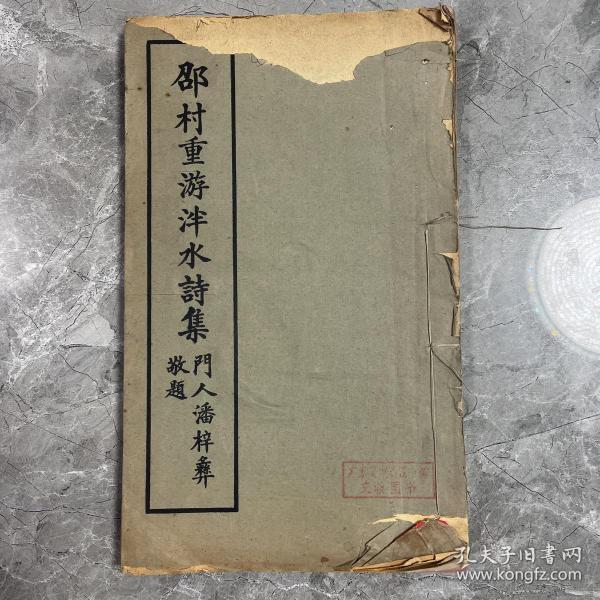 邵村重游泮水詩集
門人潘梓彝
敬題
交換圖書
孔夫子旧书网
www.kongfz.com